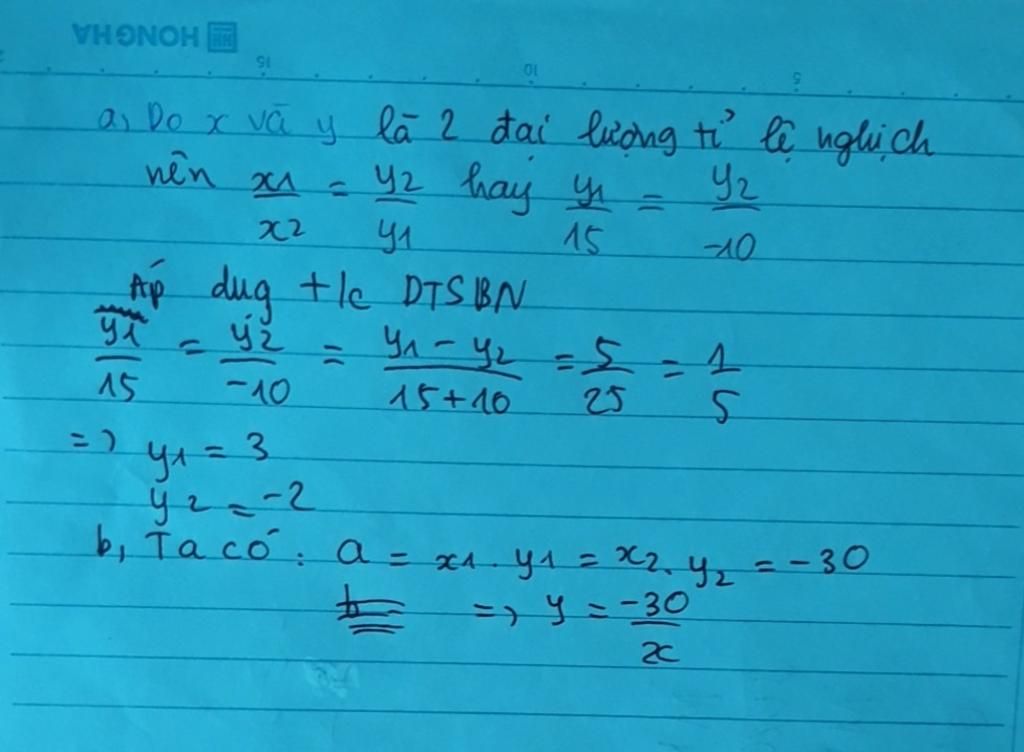 HONG HA
15 10 5
a, Do x và y là 2 đại lượng tỉ lệ nghịch
nên x1/x2 = y2/y1 hay y1/15 = y2/-10
Áp dug t/c DTSBN
y1/15 = y2/-10 = y1 - y2/15+10 = 5/25 = 1/5
=> y1 = 3
y2 = -2
b, Ta có: a = x1. y1 = x2. y2 = -30
=> y = -30/x